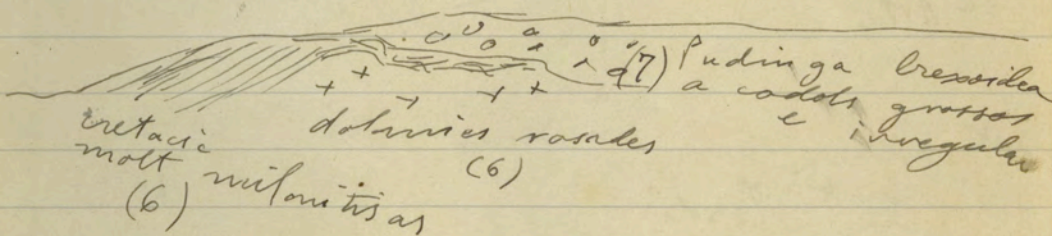 (7) Pudinga brexoidea
a codols grossos
e irregular
cretacic
molt milonitisas
(6)
dolomies rosades
(6)